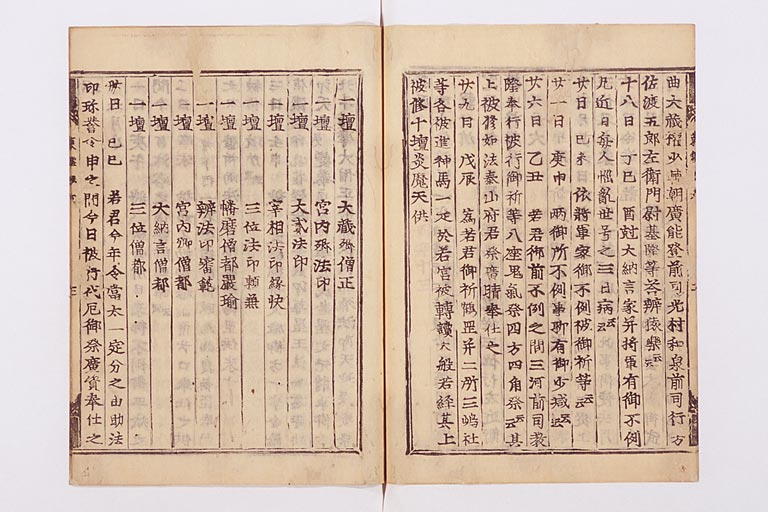 曲大蔵權少輔朝廣能登前司光村和泉前司行方
佐渡五郎左衛門尉基隆等答辨猿樂云云
十八日 丁巳 酉剋大納言家并將軍有御不例
凡近日每人惱亂世号之三日病云云
廿日 己未 依將軍家御不例被御祈等云云
廿一日 庚申 兩御所不例事聊有御少減云云
廿六日 乙丑 若君御前不例之間三河前司教
隆奉行被行御祈等八座鬼氣祭四方四角祭云云其
上被修如法泰山府君祭廣晴奉仕之
廿九日 戊辰 為若君御祈鶴罡并二所三嶋社
等各被進神馬一疋於若宮被轉讀大般若経其上
被修十壇炎魔天供
一壇 大蔵卿僧正
一壇 宮内卿法印
一壇 大貳法印
一壇 宰相法印縁快
一壇 三位法印頼兼
一壇 播磨僧都嚴瑜
一壇 辨法印審範
一壇 宮内卿僧都
一壇 大納言僧都
一壇 三位僧都
卅日 己巳 若君今年令當太一定分之由助法
印珎誉令申之間今日被行代厄御祭廣資奉仕之